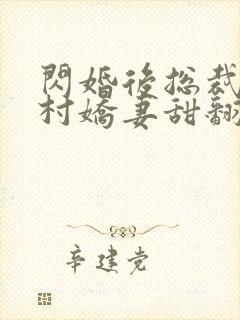 閃婚後總裁
村嬌妻甜翻
辛建党